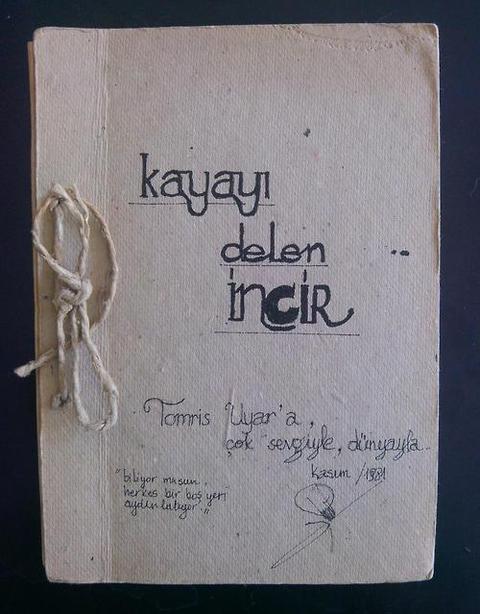 kayayı
delen
incir
Tomris Uyar'a,
çok sevgiyle, dünyayla..
Kasım /1981
"biliyor musun,
herkes bir boş yeri
aydınlatıyor."